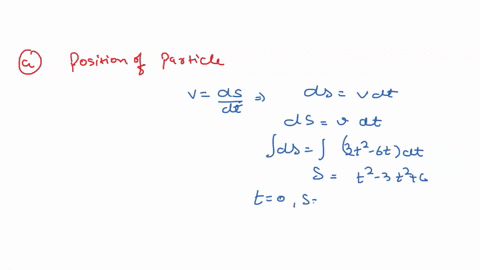 a) Position of Particle
v = ds/dt ⇒ ds = v dt
ds = v dt
∫ds = ∫ (3t²-6t) dt
S = t²-3t²+c
t=0, s=